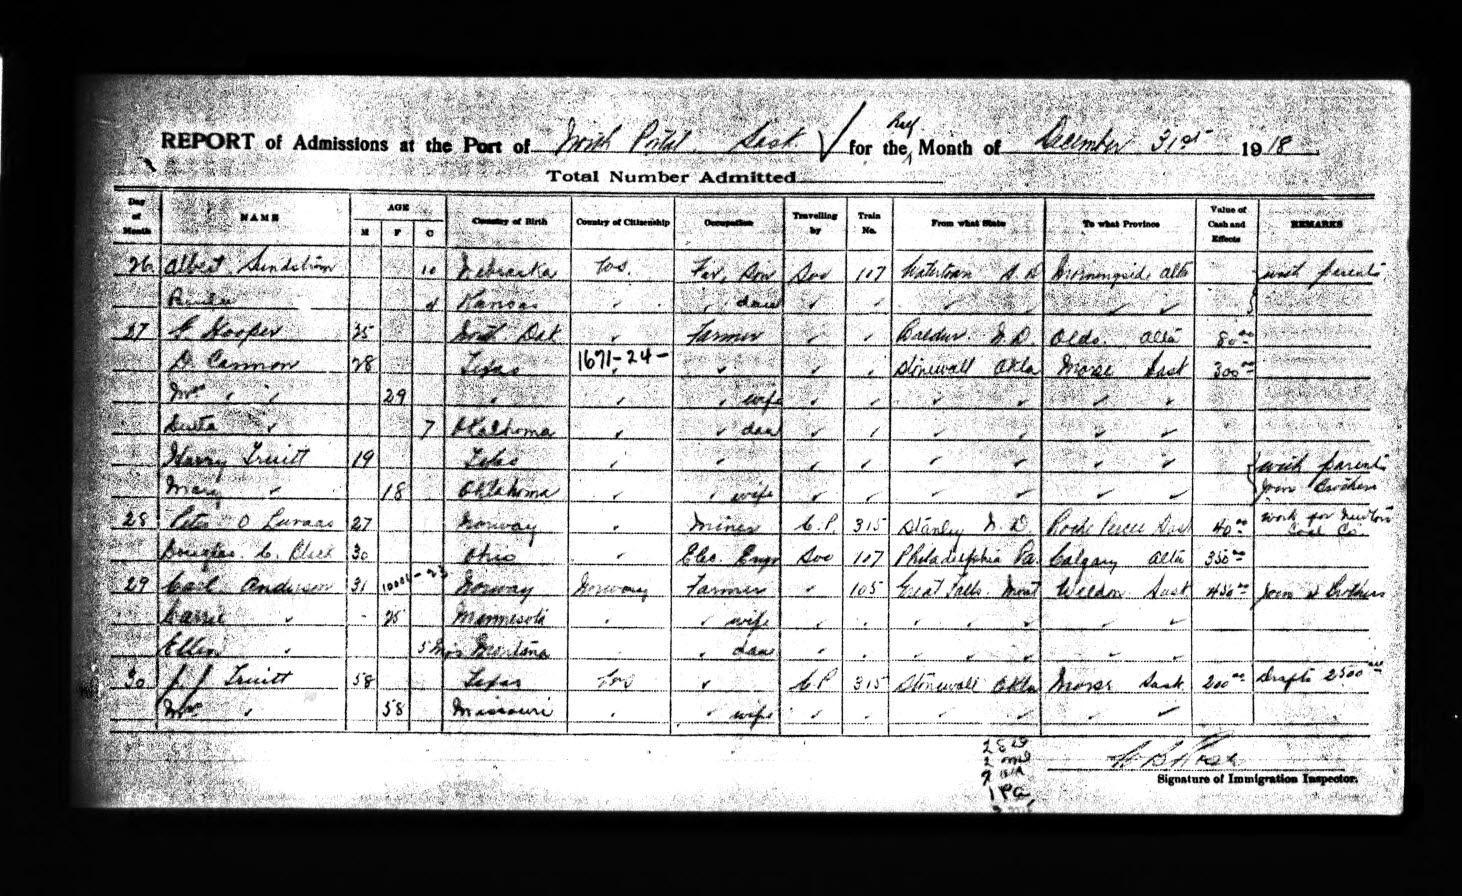 REPORT of Admissions at the Port of North Portal Sask. for the Half Month of December 31st 1918
Total Number Admitted
Day of Month NAME AGE M F C Country of Birth Country of Citizenship Occupation Travelling by Train No. From what State To what Province Value of Cash and Effects REMARKS
26 Albert Sundstrom 10 Nebraska U.S. Far, Son Soo 107 Watertown S D Morningside Alta with parents
4 Kansas " " dau " " " " " "
27 Hooper 25 North Dak " Farmer " " N.D. Olds. Alta 80 00
D Cannon 28 Texas 1671-24- " " " Stonewall Okla Morse Sask 300 00
Mrs " " 29 " " " wife " " " " " "
" 7 Oklahoma " " dau " " " " " "
Harry Truitt 19 Texas " " " " " " " " with parents
Mary " 18 Oklahoma " " wife " " " " " " join Brothers
28 Peter O 27 Norway " Miner C.P. 315 Stanley N.D. Roche Percee Sask 40 00 work for Coal Co.
Douglas C. 30 Ohio " Elec. Engr Soo 107 Philadelphia Pa. Calgary Alta 350 00
29 Carl Anderson 31 Norway Norway Farmer " 105 Great Falls. Mont Weldon Sask 450 00 Join Brothers
Carrie " 25 Minnesota " " wife " " " " " "
Ellen " 5 Mos Montana " " dau " " " " " "
30 J J Truitt 58 Texas U.S " C.P. 315 Stonewall Okla Morse Sask 200 00 Drafts 2500 00
Mrs " 58 Missouri " " wife " " " " " "
1 Pa,
Signature of Immigration Inspector.